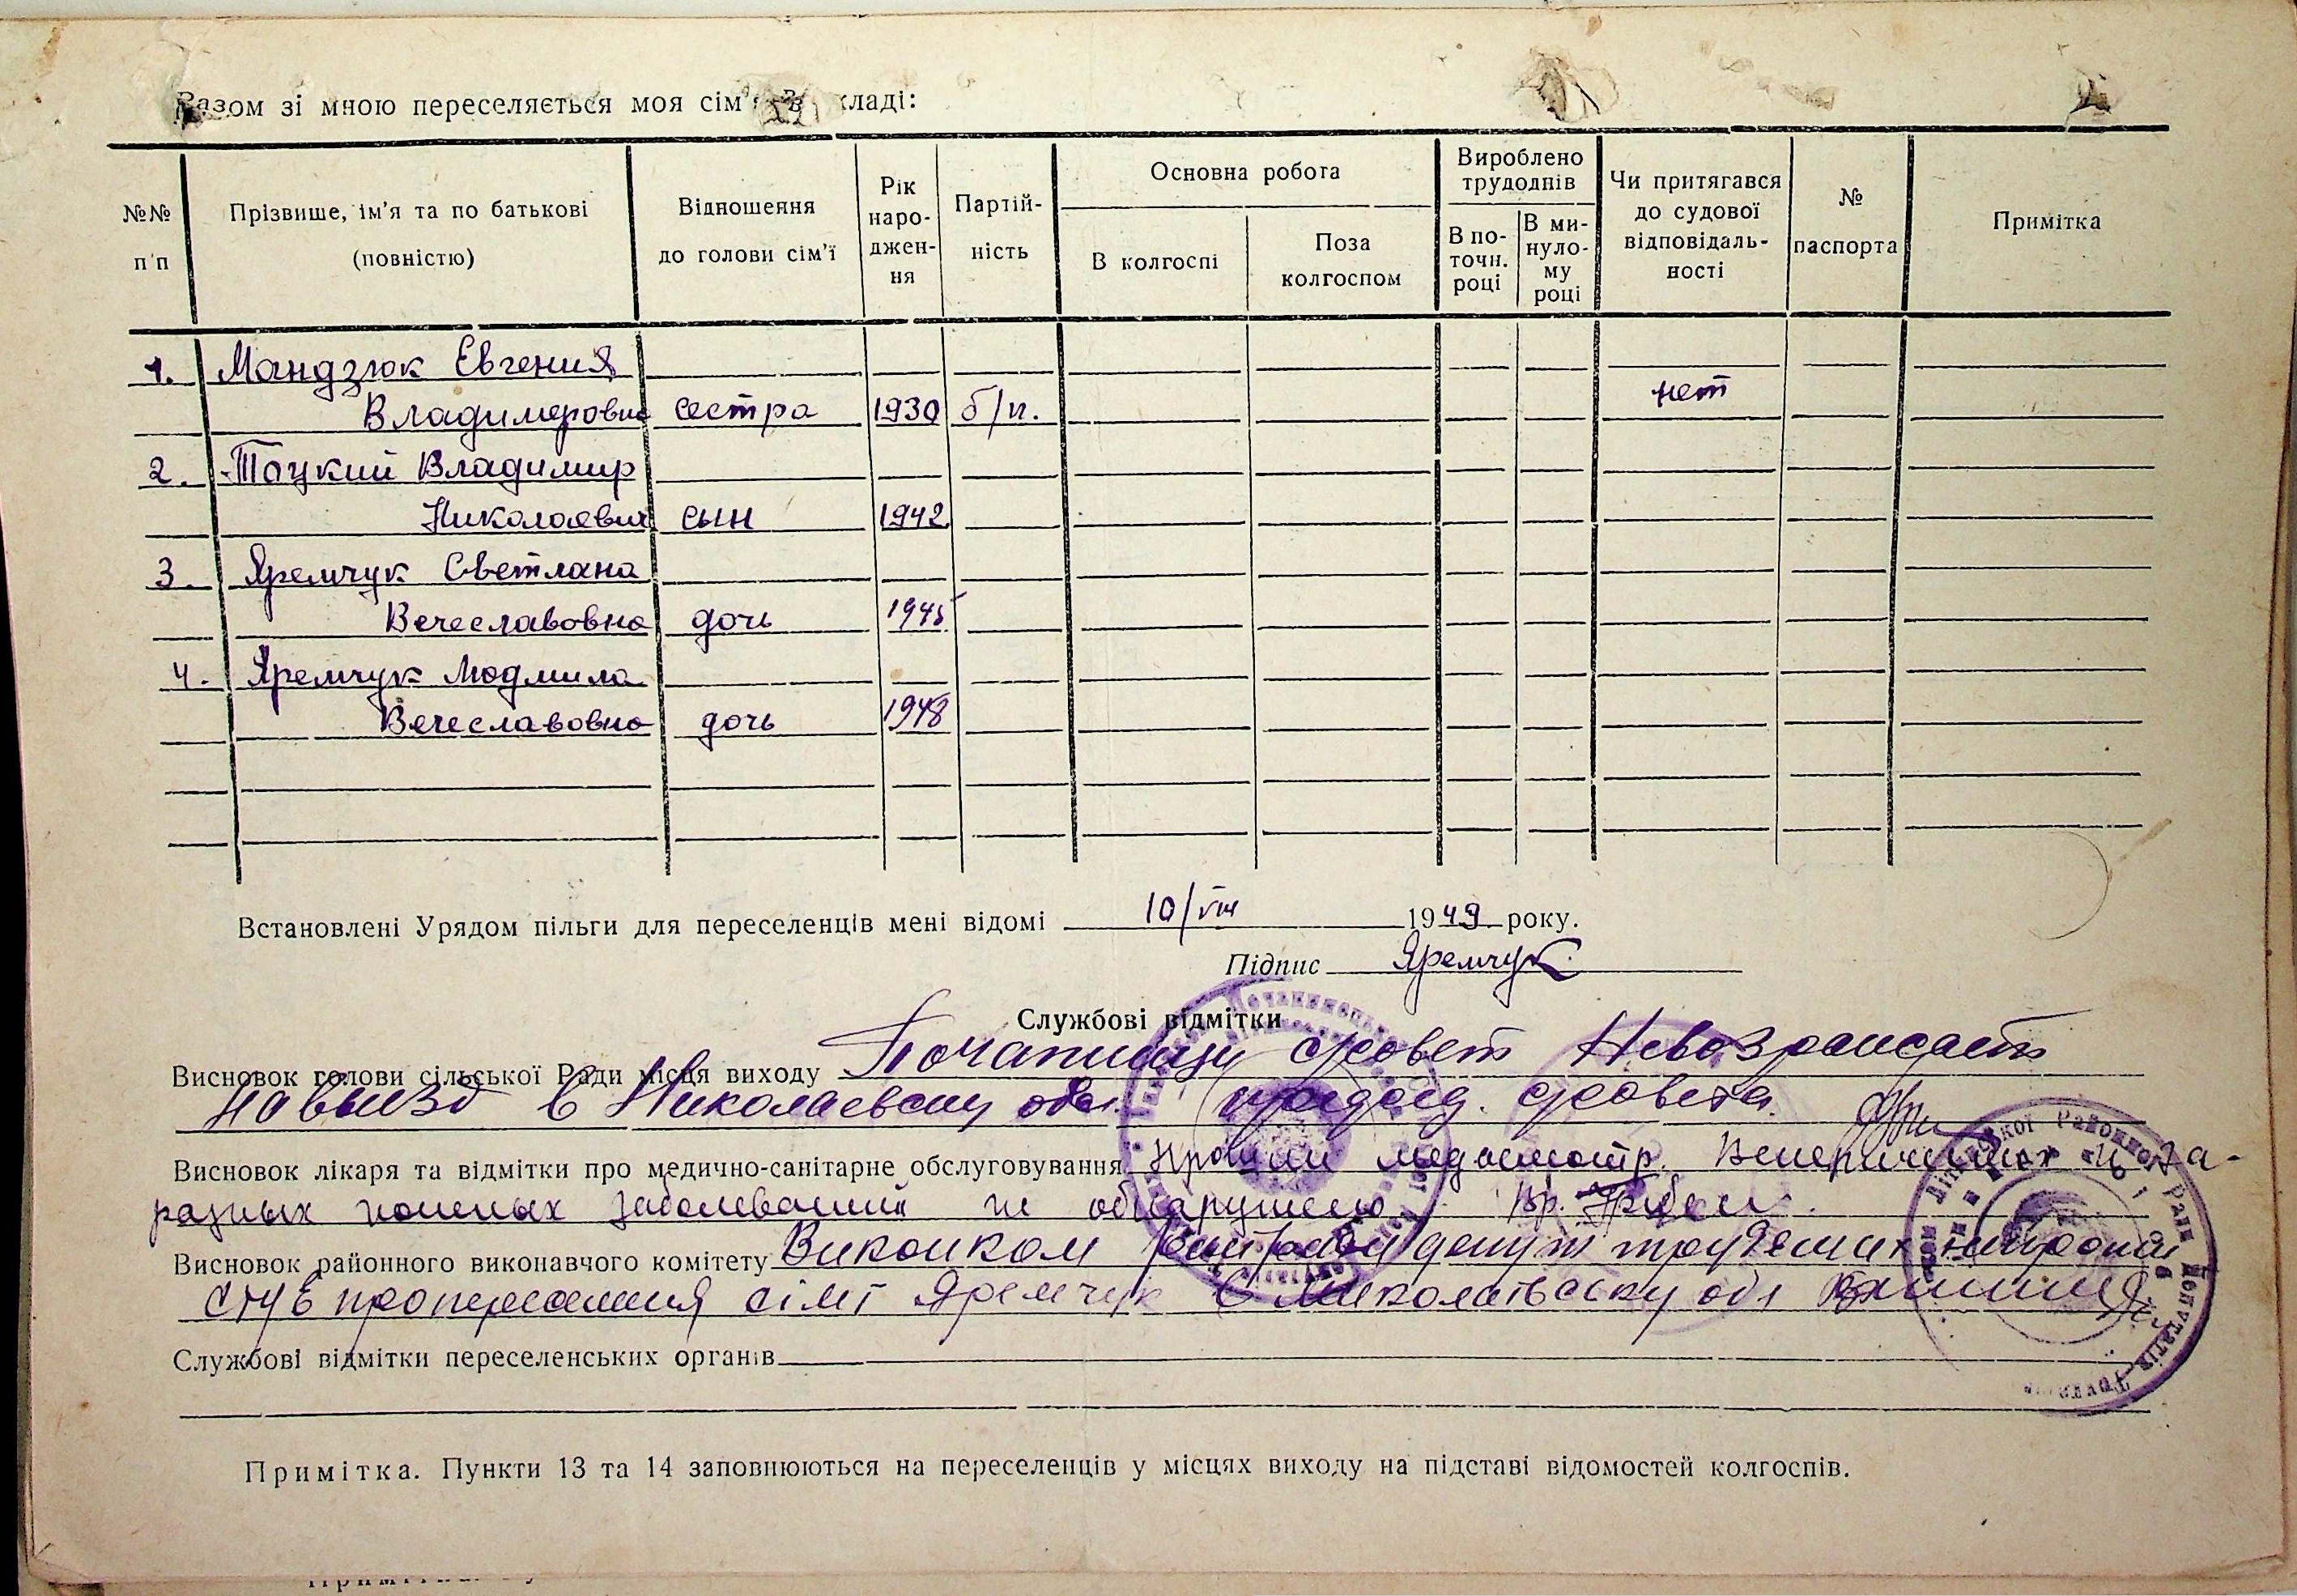 Разом зі мною переселяється моя сім'я в складі:
№№ п/п
Прізвише, ім'я та по батькові (повністю)
Відношення до голови сім'ї
Рік народження
Партійність
Основна робота
В колгоспі
Поза колгоспом
Вироблено трудоднів
В поточн. році
В минулому році
Чи притягався до судової відповідальності
№ паспорта
Примітка
1. Мандзюк Евгения
Владимировна сестра 1930 б/п. нет
2. Тацкий Владимир
Николаевич сын 1942
3. Яремчук Светлана
Вечеславовна дочь 1945
4. Яремчук Людмила
Вечеславовна дочь 1948
Встановлені Урядом пільги для переселенців мені відомі 10/VIII 1949 року.
Підпис Яремчук
Службові відмітки
Висновок голови сільської Ради місця виходу Почапинци с/совет Невозражает
на выезд в Николаевскую обл. председ. с/совета.
Висновок лікаря та відмітки про медично-санітарне обслуговування Прошли медосмотр. Венерических и за-
разных кожных заболеваний не обнаружено. Вр.
Висновок районного виконавчого комітету Виконком депут трудящих
переселення сімї Яремчук в Миколаївську обл
Службові відмітки переселенських органів
Примітка. Пункти 13 та 14 заповнюються на переселенців у місцях виходу на підставі відомостей колгоспів.